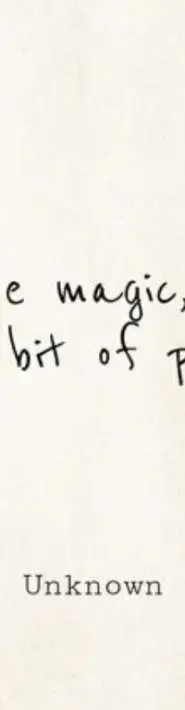 e magic,
bit of
Unknown